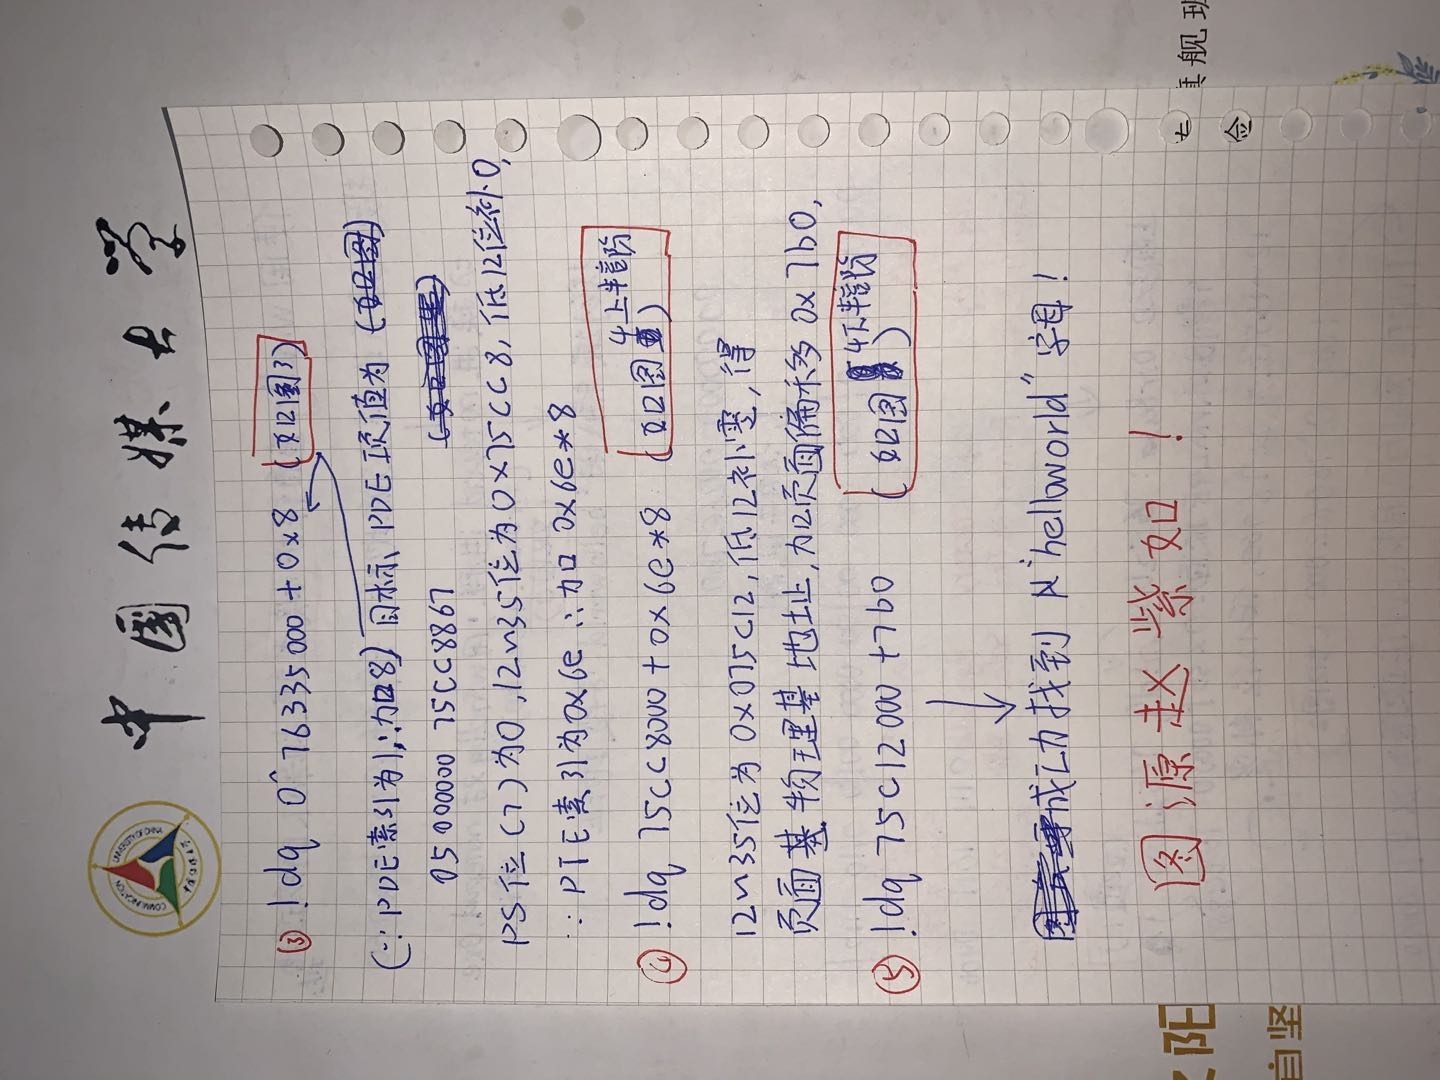 COMMUNICATION UNIVERSITY OF CHINA
中国传媒大学
中国传媒大学
③ !dq 0^76335000+0x8 (如图3)
(∵PDE索引为1,∴加8) 目标PDE项值为
05000000 75CC8867
PS位(7)为0,12~35位为0x75CC8,低12位补0,
∵PTE索引为0x6e ∴加0x6e*8
④ !dq 75CC8000+0x6e*8 (如图4上半部分)
12~35位为0x075C12,低12补零,得
页面基物理基地址,加页面偏移0x7b0,
⑤ !dq 75C12000+7b0 (如图4下半部分)
成功找到"helloworld"字母!
图源赵紫如!
阳
旗舰班
自坚